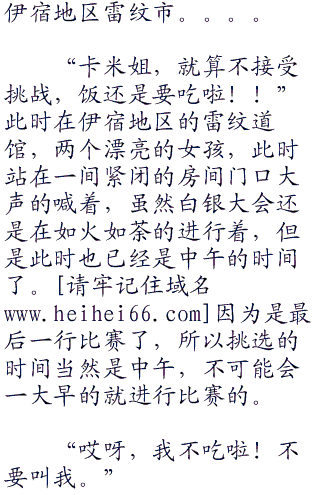 伊宿地区雷纹市。。。。
“卡米姐，就算不接受
挑战，饭还是要吃啦！！”
此时在伊宿地区的雷纹道
馆，两个漂亮的女孩，此时
站在一间紧闭的房间门口大
声的喊着，虽然白银大会还
是在如火如荼的进行着，但
是此时也已经是中午的时间
了。[请牢记住域名
www.heihei66.com]因为是最
后一行比赛了，所以挑选的
时间当然是中午，不可能会
一大早的就进行比赛的。
“哎呀，我不吃啦！不
要叫我。”